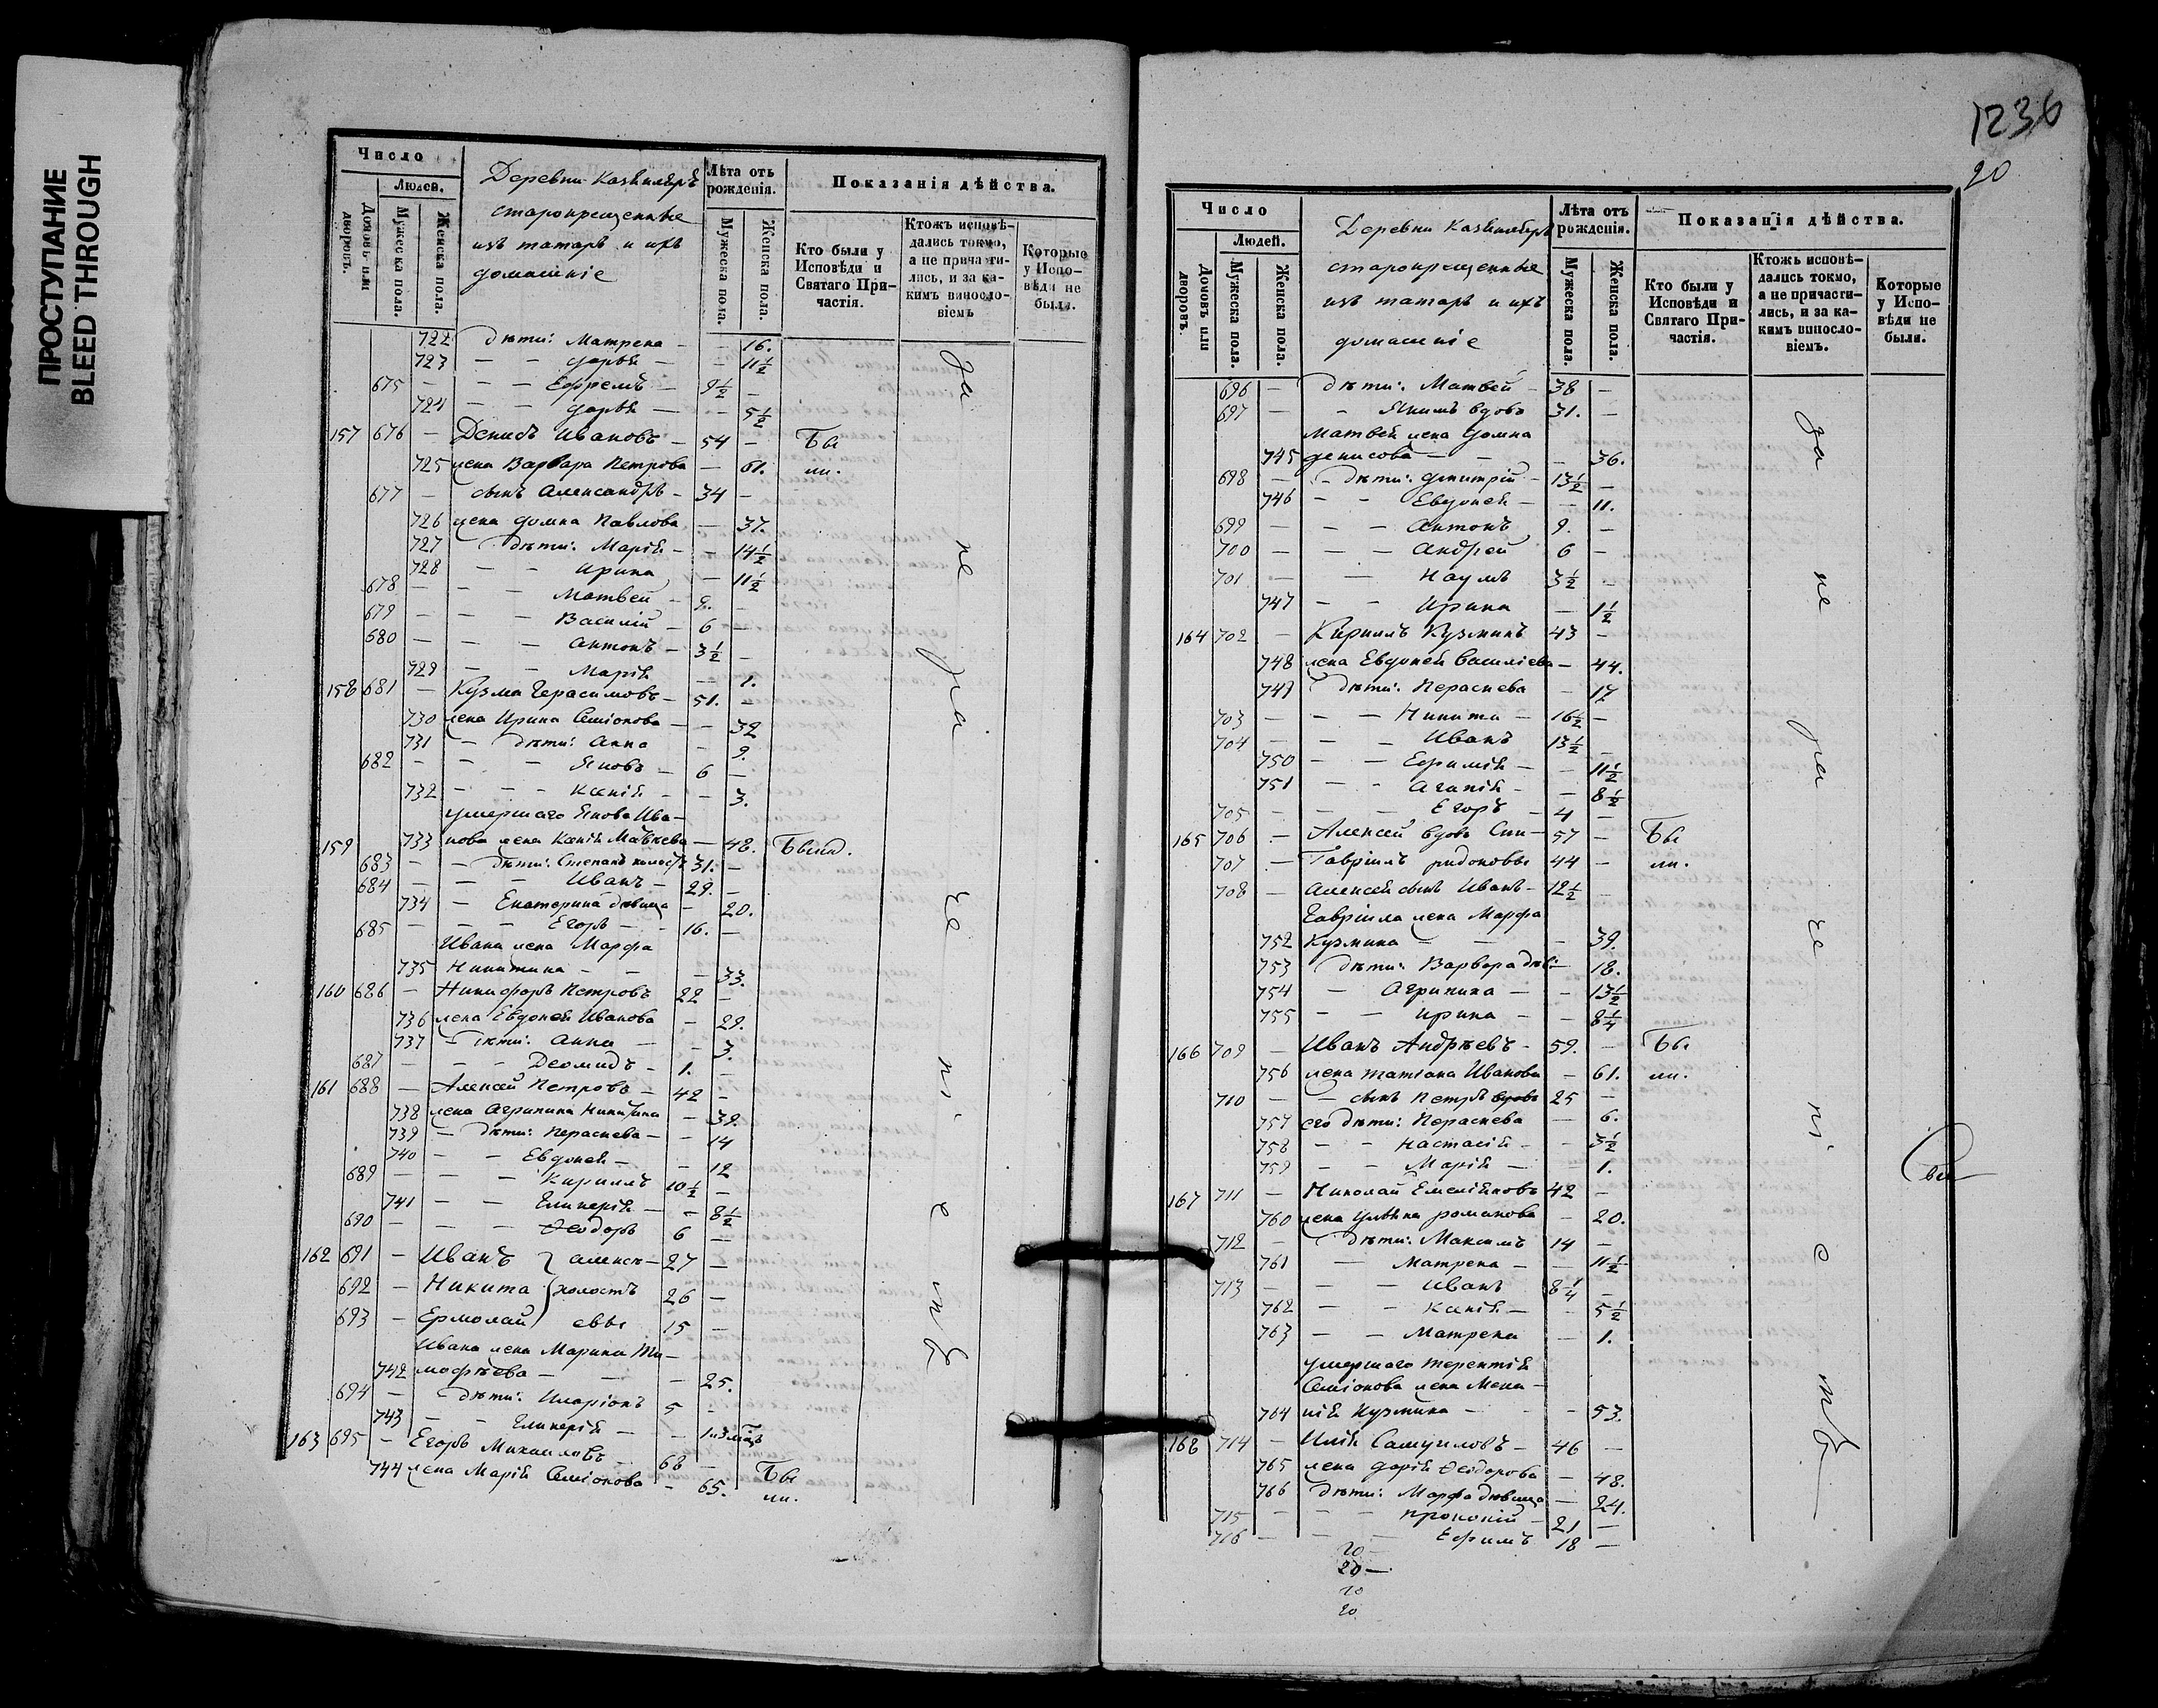 ПРОСТУПАНИЕ
BLEED THROUGH
Число
Людей.
Домовъ или дворовъ.
Мужеска пола.
Женска пола.
Деревни
старокрещенные
изъ татаръ и ихъ
домашніе
Лѣта отъ рожденія.
Мужеска пола.
Женска пола.
Показанія дѣйства.
Кто были у Исповѣди и Святаго При-
частія.
Ктожъ исповѣ-
дались токмо,
а не причасти-
лись, и за ка-
кимъ виносло-
віемъ
Которые
у Испо-
вѣди не
были.
722 дѣти: Матрена - - 16.
723 - - Дарья - 11½
675 - - - Ефремъ - 9½ -
724 - - Дарья - - 5½
157 676 - Денисъ Ивановъ - 54 - Бы
725 жена Варвара Петрова - 61. ли.
677 - сынъ Александръ - 34 -
726 жена Домна Павлова - 37.
727 - дѣти: Марія - - 14½
728 - - Ирина - 11½
678 - - - Матвей - 9. -
679 - - - Василій - 6 -
680 - - - Антонъ - 3½ -
729 - - Марія - 1.
158 681 - Кузма Герасимовъ - 51. -
730 жена Ирина Семіонова - - 32
731 - дѣти: Анна - 9.
682 - - - Яковъ - 6 -
732 - - - Ксенія - - 3.
умершаго Якова Ива-
159 733 нова жена Ксенія Матвѣева - 48. Была.
683 - - дѣти: Степанъ холостъ 31. -
684 - - - Иванъ - 29. -
734 - Екатерина дѣвица - 20.
685 - - - Егоръ - - 16. -
Ивана жена Марфа
735 Никитина - - - 33.
160 686 - Никифоръ Петровъ 22 -
736 жена Евдокея Иванова - 29.
737 - дѣти: Анна - - 3.
687 - - - Деомидъ - 1. -
161 688 - Алексей Петровъ - 42 -
738 жена Агрипина Никитина - 39.
739 - дѣти: Пераскева - - 14
740 - - Евдокея - - 12
689 - - - Кирилъ 10½ -
741 - - Гликерія - - 8½
690 - - - Ѳеодоръ 6 -
162 691 - Иванъ } алексѣ - 27 -
692 - Никита } холостъ 26 -
693 - Ермолай } евы 15 -
Ивана жена Марина Ти-
742 мофѣева - - - 25.
694 - дѣти: Иларіонъ 5 -
743 - - Гликерія - -
163 695 - Егоръ Михаиловъ 68 -
744 жена Марія Семіонова - 65. Бы
ли.
за не ра че ні е мъ
1236
20
Число
Людей.
Домовъ или дворовъ.
Мужеска пола.
Женска пола.
Деревни
старокрещенные
изъ татаръ и ихъ
домашніе
Лѣта отъ рожденія.
Мужеска пола.
Женска пола.
Показанія дѣйства.
Кто были у
Исповѣди и
Святаго При-
частія.
Ктожъ исповѣ-
дались токмо,
а не причасти-
лись, и за ка-
кимъ виносло-
віемъ.
Которые
у Испо-
вѣди не
были.
696 - дѣти: Матвей - 38 -
697 - - Якимъ вдовъ 31. -
Матвея жена Домна
745 Денисова - - - 36.
698 - - дѣти: Дмитрій - 13½ -
746 - - Евдокея - - 11.
699 - - - Антонъ 9. -
700 - - - Андрей 6 -
701 - - Наумъ 3½ -
747 - - Ирина - 1½
164 702 - Кирилъ Кузминъ 43 -
748 жена Евдокея Василіева - 44.
749 - дѣти: Пераскева - 17
703 - - - Никита - 16½ -
704 - - - Иванъ 13½ -
750 - - Ефимія - - 11½
751 - - Агапія - - 8½
705 - - - Егоръ - 4 -
165 706 - Алексей вдовъ Спи- 57 - Бы
707 - Гавріилъ ридоновы 44 - ли.
708 - Алексея сынъ Иванъ - 12½ -
Гавріила жена Марфа
752 Кузмина - - - 39.
753 дѣти: Варвара дѣв: - 18.
754 - Агрипина - - 13½
755 - - Ирина - - 8¼
166 709 - Иванъ Андрѣевъ - 59. - Бы
756 жена Татіана Иванова - 61. ли.
710 - - сынъ Петръ вдовъ 25 -
757 его дѣти: Пераскева - 6.
758 - - Настасія - - 3½
759 - - Марія - - 1.
167 711 - Николай Емеліяновъ 42 -
760 жена Уліяна Романова - 20.
712 - дѣти: Максимъ 14 -
761 - Матрена - - 11½
713 - - - Иванъ 8¼ -
762 - - Ксенія - - 5½
763 - - Матрена - 1.
умершаго Терентія
Семіонова жена Мела-
764 нія Кузмина - - - 53.
168 714 - Илія Самуиловъ - 46 -
765 жена Дарія Ѳеодорова - 48.
766 дѣти: Марфа дѣвица - 24.
715 - - - Прокопій - 21 -
716 - - - Ефимъ 18 -
за не ра че ні е мъ
20 -
20 -
20
20